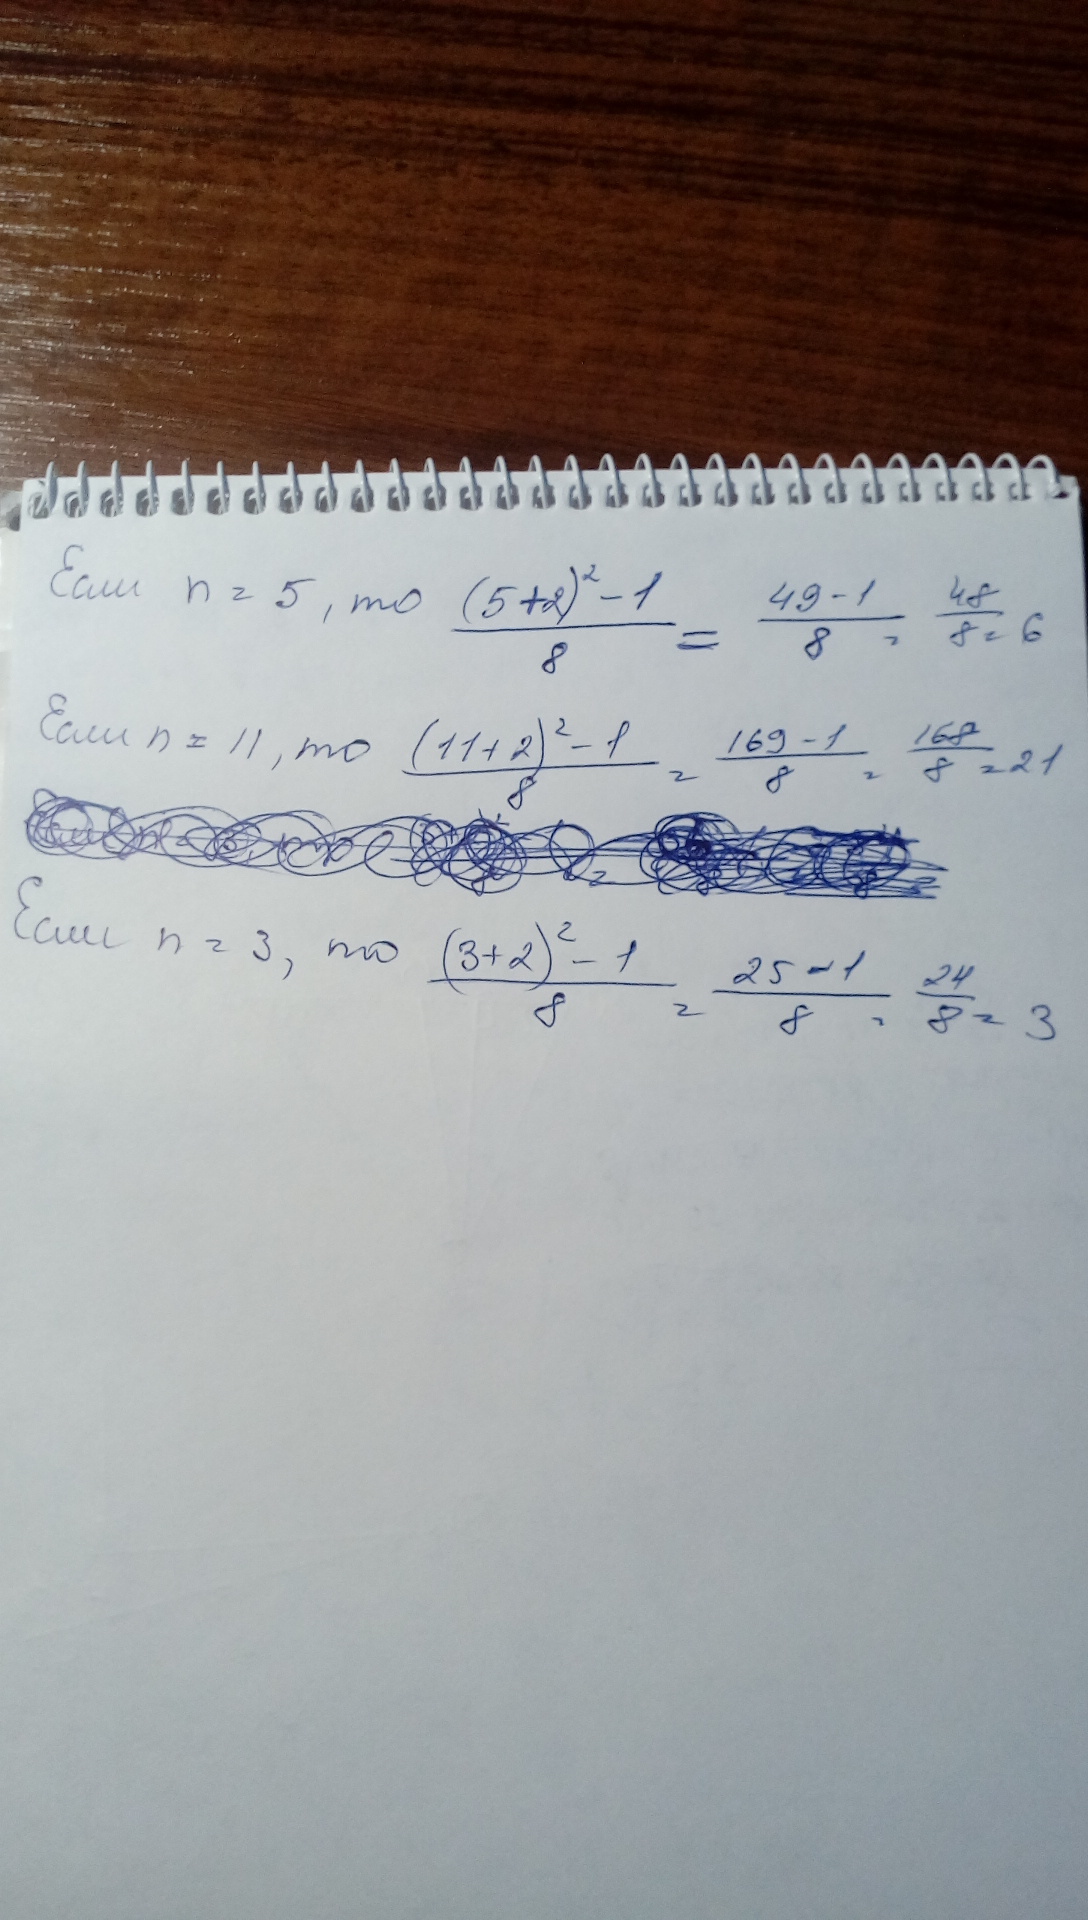 Если n = 5, то (5+2)² - 1 / 8 = 49 - 1 / 8 = 48 / 8 = 6
Если n = 11, то (11+2)² - 1 / 8 = 169 - 1 / 8 = 168 / 8 = 21
Если n = 3, то (3+2)² - 1 / 8 = 25 - 1 / 8 = 24 / 8 = 3